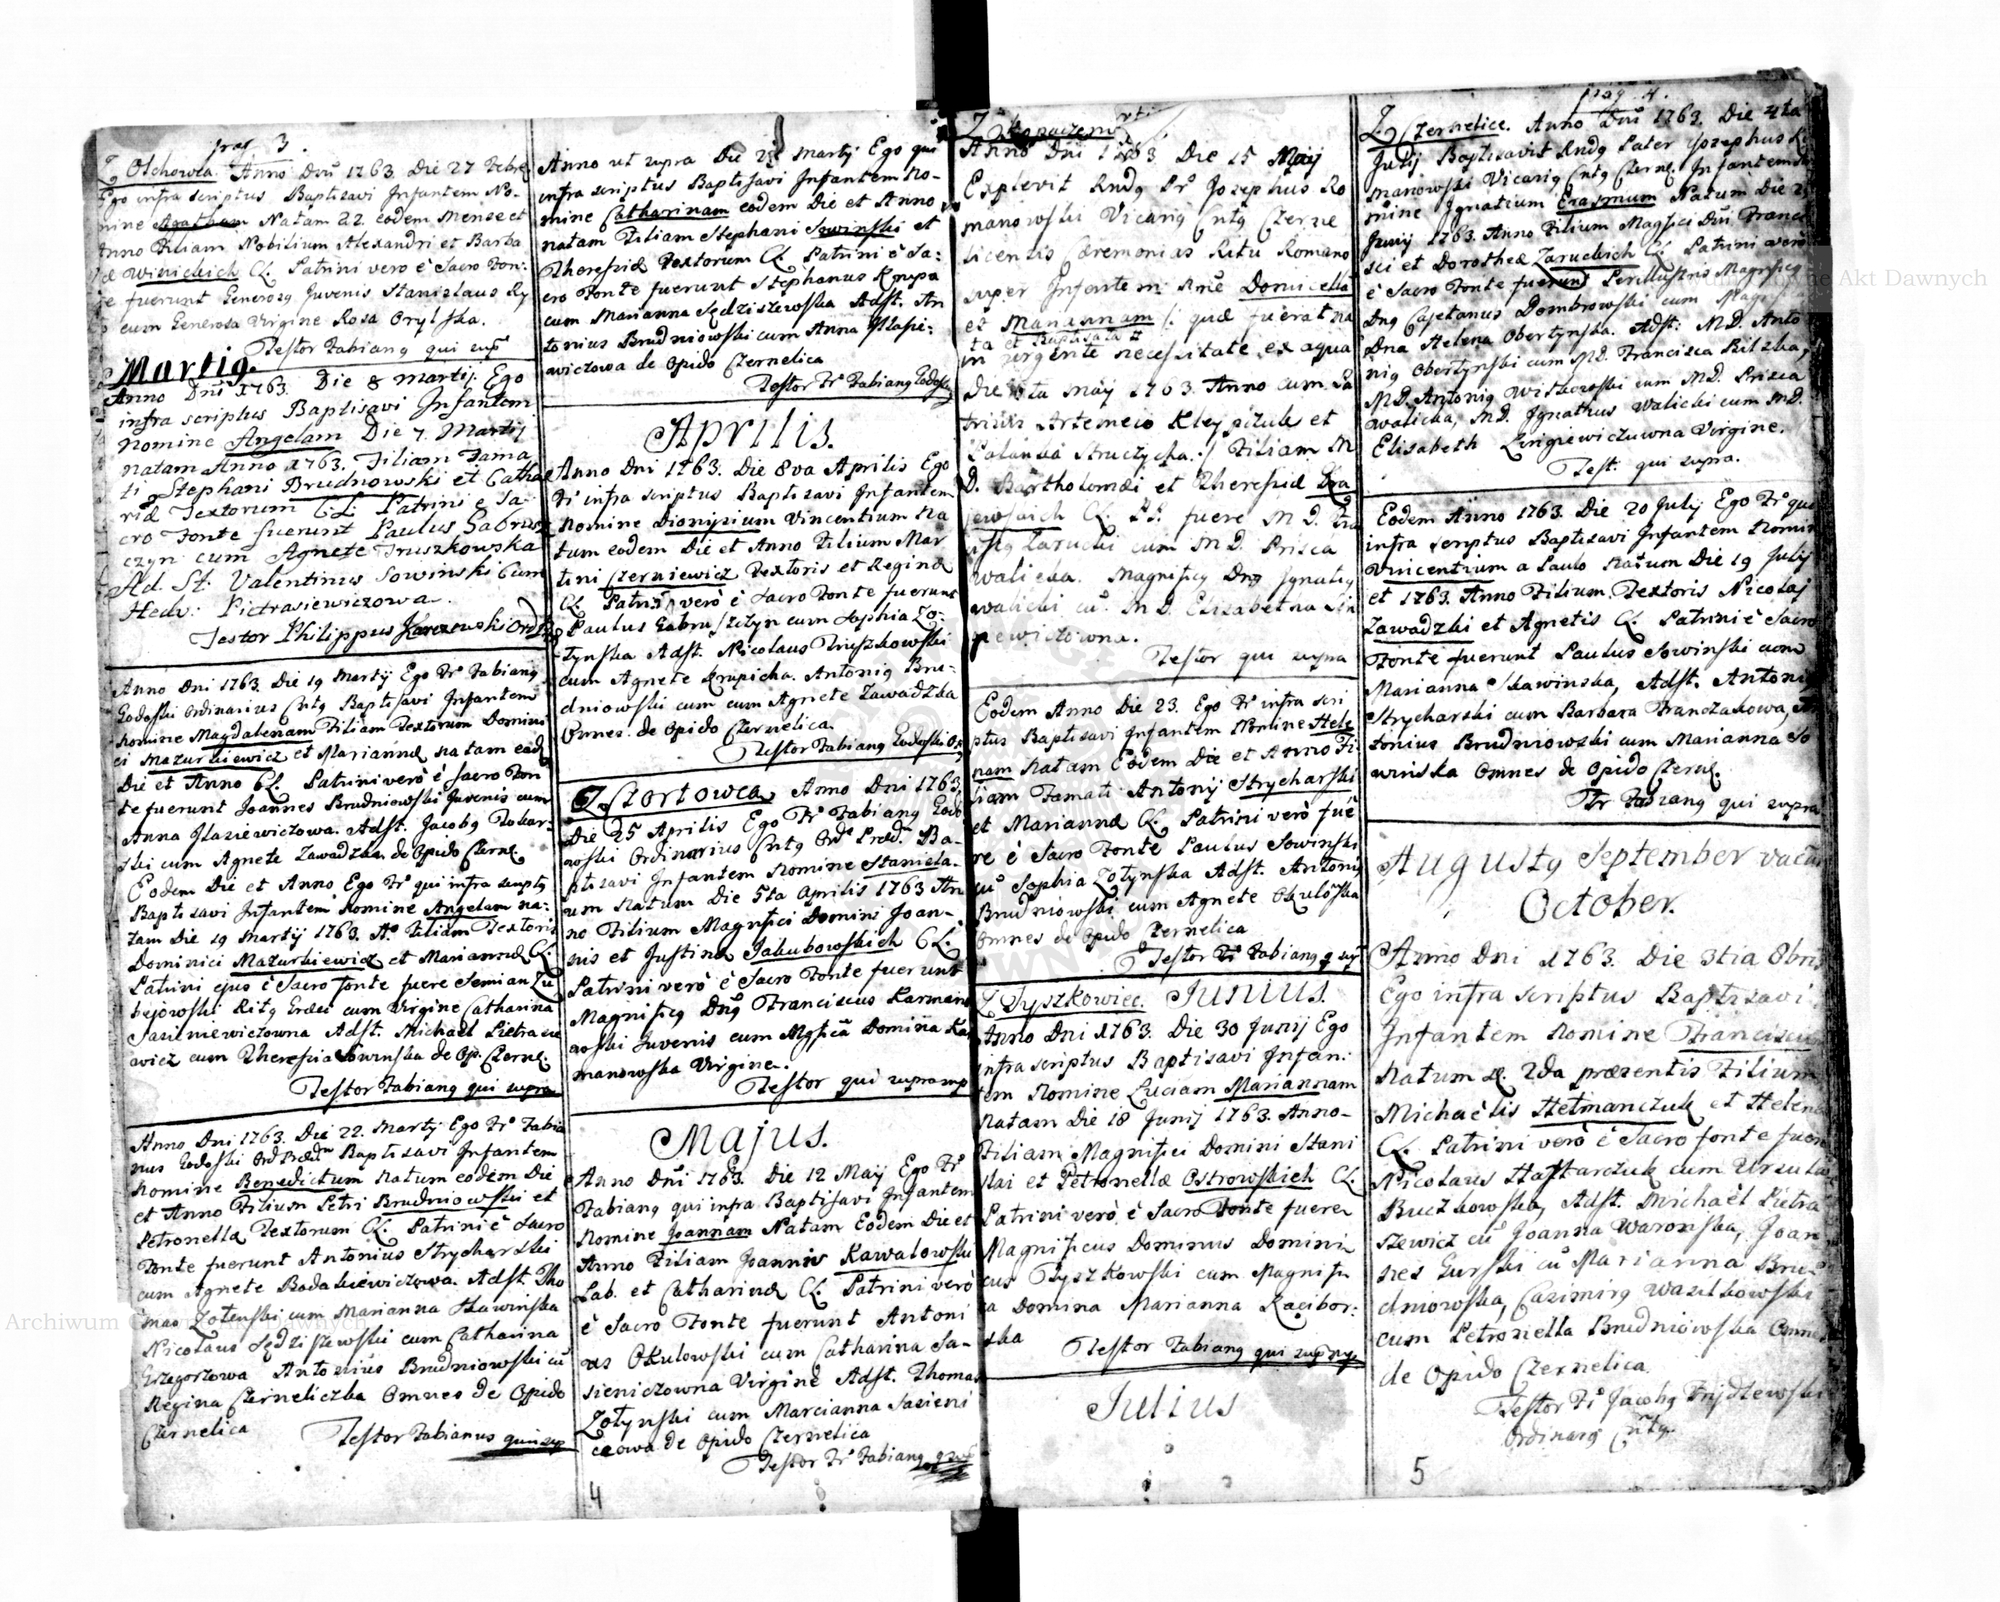 pag 3.
Z Olchowca. Anno Dnĩ 1763. Die 27 Febr
Ego infra scriptus Baptisavi Infantem No-
mine Agatham Natam 22. eodem Mense et
Anno Filiam Nobilium Alexandri et Barba
Winickich CL. Patrini vero è Sacro Fon:
te fuerunt Generosg Juvenis Stanislaus
cum Generosa Virgine Rosa Orylska.
Testor Fabiang qui sup
Martig.
Anno Dnĩ 1763. Die 8 Martij. Ego
infra scriptus Baptisavi Infantem
Nomine Angelam Die 7. Martij
natam Anno 1763. Filiam Fama
ti Stephani Brudnowski et Catha
rinæ Textorum C.L. Patrini e Sa-
cro Fonte fuerunt Paulus Gabrus
czyn cum Agnete Truszkowska
Ad. St. Valentinus Sowinski Cum
Hedv: Pietrasiewiczowa.
Testor Philippus Karczewski Ord
Anno Dni 1763. Die 19 Martij Ego Fr Fabiang
Godoski Ordinarius Cntg Baptisavi Infantem
Nomine Magdalenam Filiam Textorum Domini
ci Mazurkiewicz et Mariannæ natam eod
Die et Anno CL. Patrini verò è Sacro Fon
te fuerunt Joannes Brudniowski Juvenis cum
Anna Glasiewiczowa. Adst. Jacobg Tokar-
ski cum Agnete Zawadzka de Opido Czerne.
Eodem Die et Anno Ego Fr qui infra scriptg
Baptisavi Infantem Nomine Angelam na:
tam Die 19 Martij 1763. Ao Filiam Textoris
Dominici Mazurkiewicz et Mariannæ CL.
Patrini ejus è Sacro Fonte fuere Semian Zu
bejowski Ritg Græci cum Virgine Catharina
Sasiniewiczowna Adst. Michael Pietrasie
wicz cum Theresia Sowinska de Op: Czerne.
Testor Fabiang qui supra
Anno Dni 1763. Die 22. Martij Ego Fr Fabia
nus Godoski Ord Præd Baptisavi Infantem
Nomine Benedictum natum eodem Die
et Anno Filium Petri Brudniowski et
Petronellæ Textorum CL. Patrini è Sacro
Fonte fuerunt Antonius Strycharski
cum Agnete Badakiewiczowa. Adst. Tho
mas Zotenski cum Marianna Skawinska
Nicolaus Sędziszewski cum Catharina
Grzegorzowa Antonius Brudniowski cũ
Regina Czerneliczka Omnes de Opido
Czernelica
Testor Fabianus qui sup
Anno ut supra Die Martij Ego qui
infra scriptus Baptisavi Infantem No-
mine Catharinam eodem Die et Anno
natam Filiam Stephani Sowinski et
Theresiæ Textorum CL. Patrini è Sa:
cro Fonte fuerunt Stephanus Krupa
cum Marianna Sędziszewska Adst. An
tonius Brudniowski cum Anna Glasie:
wiczowa de Opido Czernelica
Testor Fr Fabiang Godoski
Aprilis.
Anno Dni 1763. Die 8va Aprilis Ego
Fr infra scriptus Baptisavi Infantem
Nomine Dionisium Vincentium Na
tum eodem Die et Anno Filium Mar
tini Czerniewicz Textoris et Reginæ
CL. Patrini verò è Sacro Fonte fuerunt
Paulus Gabruszczyn cum Sophia Zo-
tynska Adst. Nicolaus Truszkowski
cum Agnete Krupicha. Antonig Bru-
dniowski cum cum Agnete Zawadzka
Omnes de Opido Czernelica
Testor Fabiang Godoski
Z Czortowca Anno Dni 1763,
Die 25 Aprilis Ego Fr Fabiang Godo
Ordinarius Cntg Ord Præd Ba-
ptisavi Infantem Nomine Stanisla-
um Natum Die 5ta Aprilis 1763 An
no Filium Magnifici Domini Joan-
nis et Justinæ Jakubowskich CL.
Patrini verò è Sacro Fonte fuerunt
Magnificg Dng Franciscus Karmano
wski Juvenis cum Mgficã Domina Kar
manowska Virgine.
Testor qui supra mp
Majus.
Anno Dnĩ 1763. Die 12 May Ego Fr
Fabiang qui infra Baptisavi Infantem
Nomine Joannam Natam Eodem Die et
Anno Filiam Joannis Kawalowski
Lab. et Catharinæ CL. Patrini verò
è Sacro Fonte fuerunt Antoni
us Okulowski cum Catharina Sa-
sieniczowna Virgine Adst. Thomas
Zotynski cum Marcianna Sasieni
czowa de Opido Czernelica
Testor Fr Fabiang
4
Z
Anno Dnĩ 1763 Die 15 May
Explevit Rndg Pr Josephus Ro
manowski Vicarig Cntg Czerne
licensis Cæremonias Ritu Romano
super Infantem nõe Domicella
et Mariannam (: quæ fuerat na
ta et Baptisata
in urgente necessitate ex aqua
Die May 1763. Anno cum Pa
trinis Artemeio Kleypituk et
Palanka Struczycha. :/ Filiam M
D. Bartholomæi et Theresiæ Kra
jewskich CL. P.P. fuere M D. Fra
Zarucki cum M D. Prisca
Walicka. Magnificg Dng Ignatig
Walicki cũ M D. Elisabetha Lin
giewiczowna.
Testor qui supra
Eodem Anno Die 23. Ego Fr infra scri
ptus Baptisavi Infantem Nomine Hele
nam Natam Eodem Die et Anno Fi
liam Famati Antonij Strycharski
et Mariannæ CL. Patrini verò fue
re è Sacro Fonte Paulus Sowinski
cũ Sophia Zotynska Adst. Antonig
Brudniowski cum Agnete Okulowska
Omnes de Opido Czernelica
Testor Fr Fabiang q sup
Z Tyszkowiec. Junius.
Anno Dni 1763. Die 30 Junij Ego
infra scriptus Baptisavi Infan:
tem Nomine Luciam Mariannam
Natam Die 18 Junij 1763. Anno-
Filiam Magnifici Domini Stani
slai et Petronellæ Ostrowskich CL.
Patrini verò è Sacro Fonte fuere
Magnificus Dominus Domini
cus Tyszkowski cum Magnifi
ca Domina Marianna Racibor:
ska
Testor Fabiang qui supra mp
Julius
pag 4.
Z Czernelice. Anno Dnĩ 1763. Die 4ta
Julij Baptisavit Rndg Pater Josephus Ro
manowski Vicarig Cntg Czerne. Infantem No
mine Ignatium Erasmum Natum Die 2
Junij 1763. Anno Filium Magfici Dnĩ Franci
sci et Dorotheæ Zaruckich CL. Patrini verò
è Sacro Fonte fuerunt Perillustris Magnificg
Dng Cajetanus Dombrowski cum Magnifica
Dna Helena Obertynska. Adst: M.D. Anto
nig Obertynski cum M.D. Francisca Bilzka,
M.D. Antonig Witkowski cum M.D. Prisca
Walicka, M.D. Ignatius Walicki cum M.D.
Elisabeth Lingiewiczuwna Virgine.
Test. qui supra.
Eodem Anno 1763. Die 20 July Ego Fr qui
infra scriptus Baptisavi Infantem Nomine
Vincentium a Paulo Natum Die 19 July
et 1763. Anno Filium Textoris Nicolaj
Zawadzki et Agnetis CL. Patrini è Sacro
Fonte fuerunt Paulus Sowinski cum
Marianna Skawinska, Adst. Antonig
Strycharski cum Barbara Franczakowa, An
tonius Brudniowski cum Marianna So
winska Omnes de Opido Czerne.
Fr Fabiang qui supra
Augustg September vacat
October.
Anno Dni 1763. Die 3tia 8bris
Ego infra scriptus Baptisavi
Infantem Nomine Franciscum
Natum 2da præsentis Filium
Michaëlis Hetmanczuk et Helenæ
CL. Patrini verò è Sacro fonte fuere
Nicolaus Haftarczuk cum Ursula
Buczkowska, Adst. Michaël Pietra
szewicz cũ Joanna Waronska, Joan
nes Gurski cũ Marianna Bru-
dniowska, Casimirg Wasilkowski
cum Petronella Brudniowska Omnes
de Opido Czernelica.
Testor Fr Jacobg Frydzewski
Ordinarg Cntg.
5
Archiwum Główne Akt Dawnych
Archiwum Główne Akt Dawnych